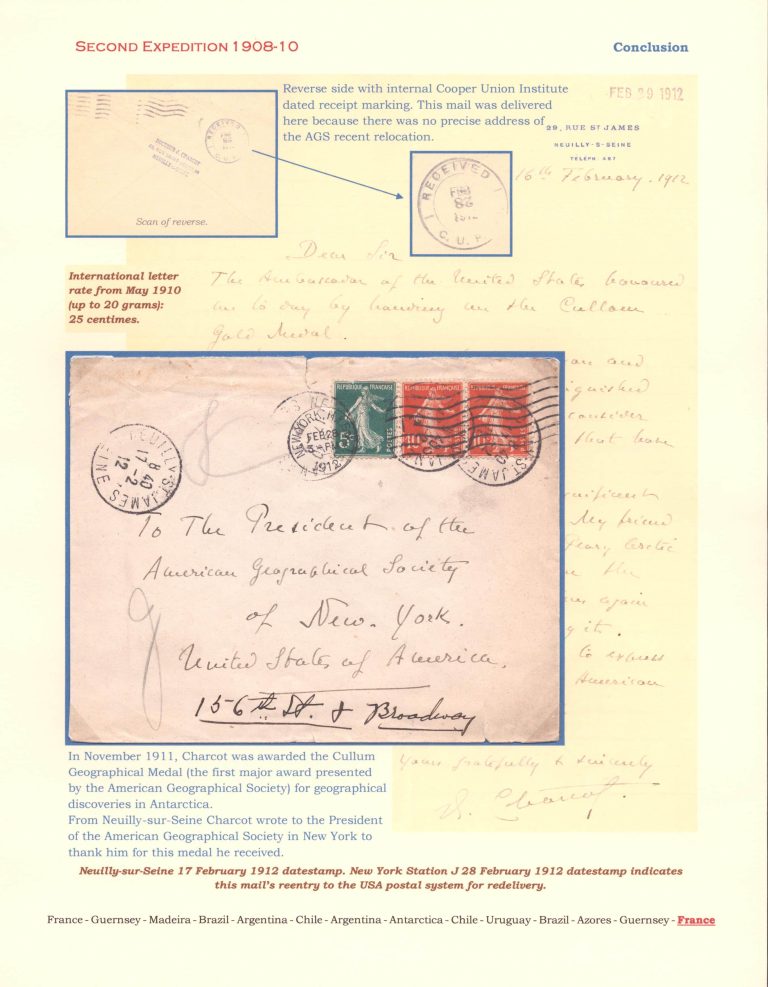 SECOND EXPEDITION 1908-10
Conclusion
Reverse side with internal Cooper Union Institute
dated receipt marking. This mail was delivered
here because there was no precise address of
the AGS recent relocation.
FEB 29 1912
29, RUE ST JAMES
NEUILLY-S-SEINE
TELEPH. 487
16th February. 1912
RECEIVED
C. U. P.
RECEIVED
FEB
C. U. P.
Scan of reverse.
Dear Sir
The Ambassador of the United States honoured
me to day by handing me the Cullum
Gold Medal.
International letter
rate from May 1910
(up to 20 grams):
25 centimes.
on and
consider
that have
My friend
Peary Arctic
the
again
it.
to express
American
Yours gratefully & sincerely
J. Charcot.
REPUBLIQUE FRANÇAISE
5
POSTES
REPUBLIQUE FRANÇAISE
10
REPUBLIQUE FRANÇAISE
10
POSTES
NEW YORK, N.Y.
FEB 28
1912
NEUILLY-ST-JAMES
8 40
17 -2
12
SEINE
To The President of the
American Geographical Society
of New. York.
United States of America.
156th St. & Broadway
In November 1911, Charcot was awarded the Cullum
Geographical Medal (the first major award presented
by the American Geographical Society) for geographical
discoveries in Antarctica.
From Neuilly-sur-Seine Charcot wrote to the President
of the American Geographical Society in New York to
thank him for this medal he received.
Neuilly-sur-Seine 17 February 1912 datestamp. New York Station J 28 February 1912 datestamp indicates
this mail's reentry to the USA postal system for redelivery.
France - Guernsey - Madeira - Brazil - Argentina - Chile - Argentina - Antarctica - Chile - Uruguay - Brazil - Azores - Guernsey - France